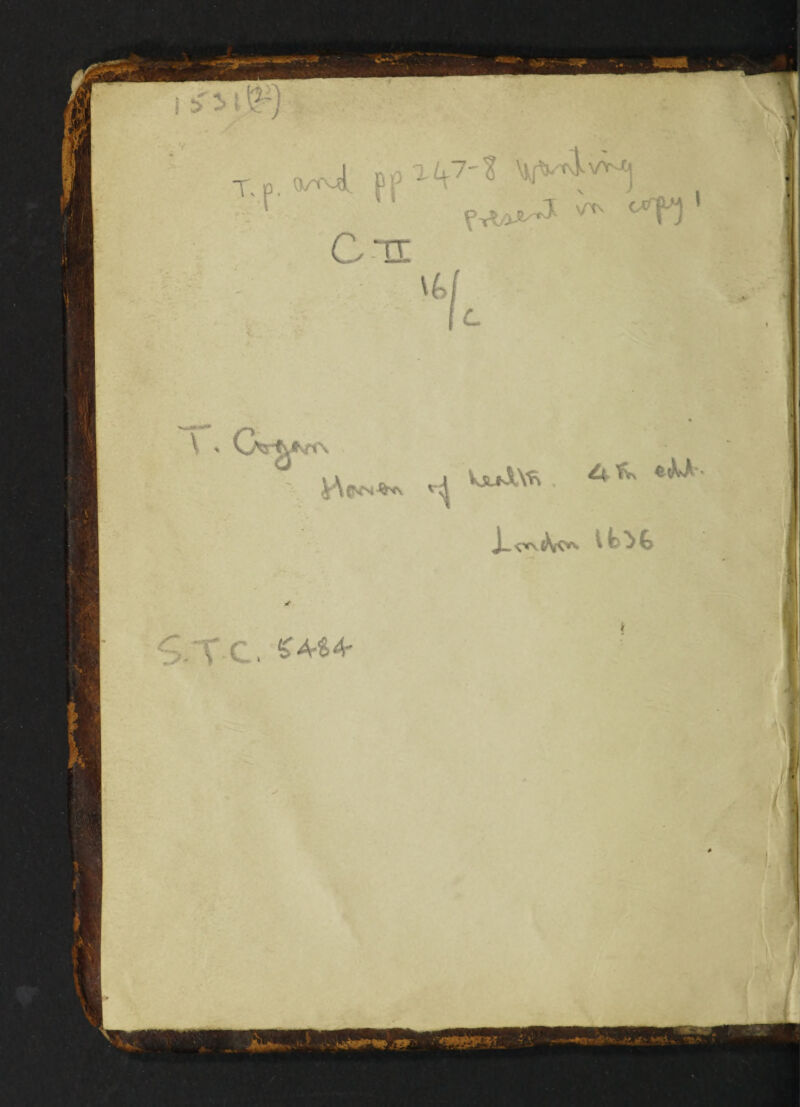 1531(2)
T.p. and pp 247-8 wanting
Present in copy 1
C II
16/c
T. Cogan
Haven of health. 4th edit.
London 1636
S.T.C. 5484